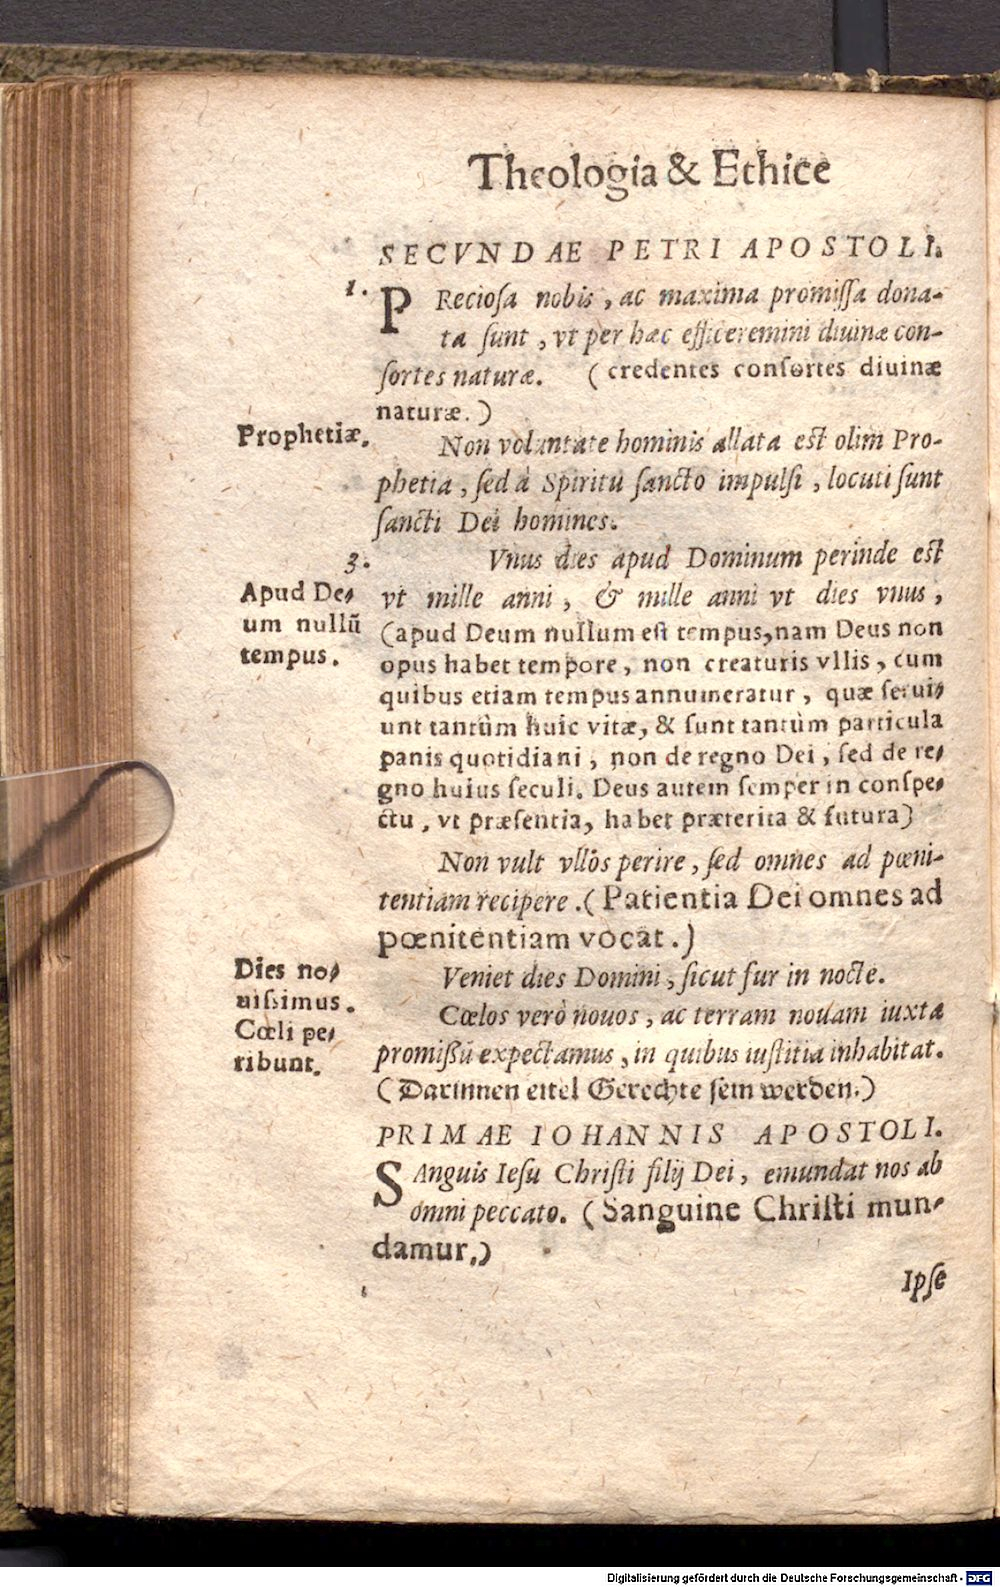 Theologia & Ethice
SECVNDAE PETRI APOSTOLI.
1.
PRecioſa nobis, ac maxima promiſſa dona-
ta ſunt, vt per hæc efficeremini diuinæ con-
ſortes naturæ. (credentes conſortes diuinæ
naturæ.)
Prophetiæ.
Non voluntate hominis allata est olim Pro-
phetia, ſed à Spiritu ſancto impulſi, locuti ſunt
ſancti Dei homines.
3.
Vnus dies apud Dominum perinde est
Apud De-
um nullũ
tempus.
vt mille anni, & mille anni vt dies vnus,
(apud Deum nullum eſt tempus, nam Deus non
opus habet tempore, non creaturis vllis, cum
quibus etiam tempus annumeratur, quæ ſerui-
unt tantùm huic vitæ, & ſunt tantùm particula
panis quotidiani, non de regno Dei, ſed de re-
gno huius ſeculi. Deus autem ſemper in conſpe-
ctu, vt præſentia, habet præterita & futura)
Non vult vllos perire, ſed omnes ad pœni-
tentiam recipere. (Patientia Dei omnes ad
pœnitentiam vocat.)
Dies no-
uiſsimus.
Cœli pe-
ribunt.
Veniet dies Domini, ſicut fur in nocte.
Cœlos verò nouos, ac terram nouam iuxta
promiſſũ expectamus, in quibus iuſtitia inhabitat.
(Darinnen eitel Gerechte ſein werden.)
PRIMAE IOHANNIS APOSTOLI.
SAnguis Ieſu Chriſti filij Dei, emundat nos ab
omni peccato. (Sanguine Chriſti mun-
damur.)
Ipſe
Digitalisierung gefördert durch die Deutsche Forschungsgemeinschaft - DFG